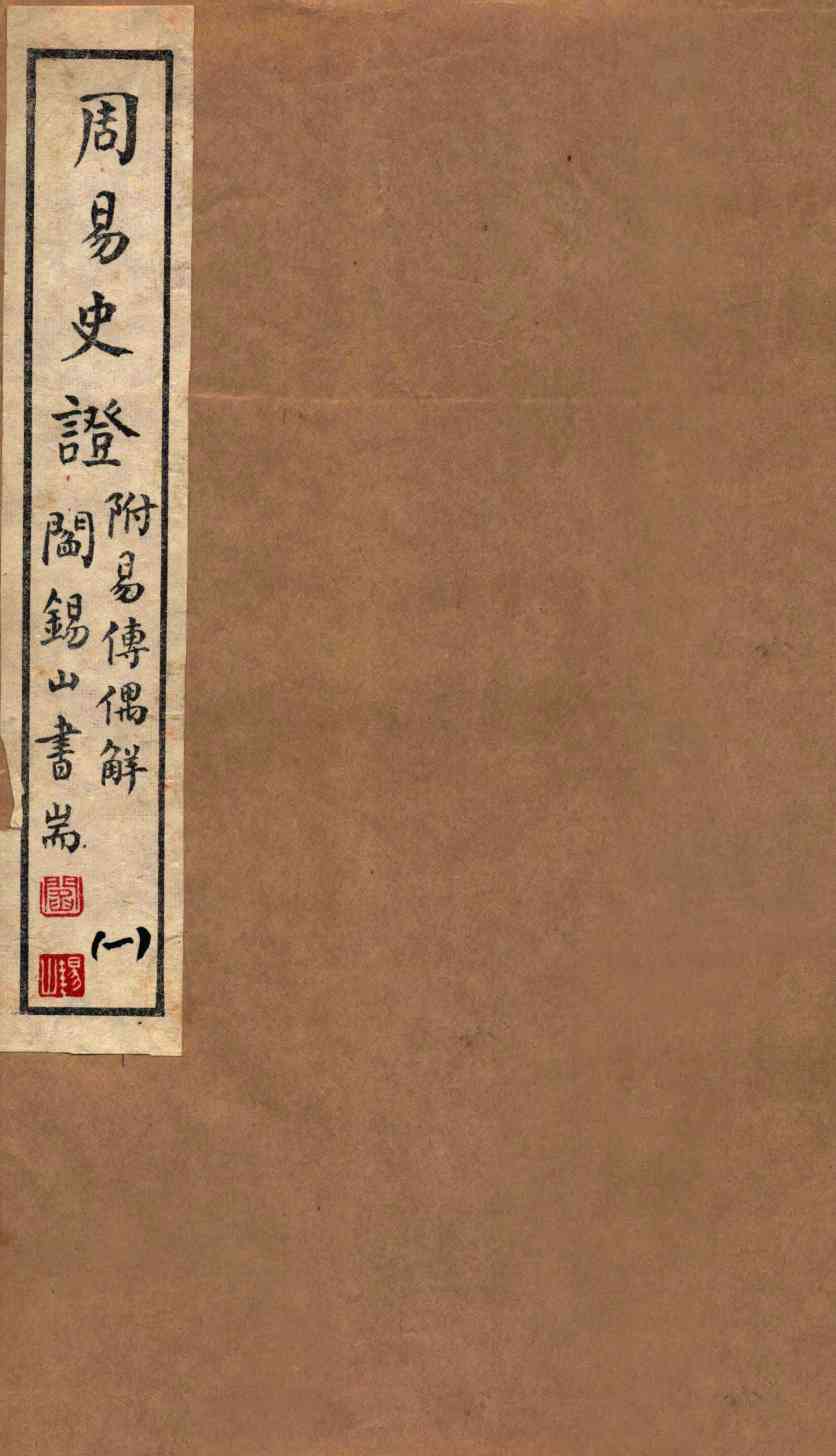 周易史證
附易傳偶解
閻錫山書耑
閻
錫山
(一)